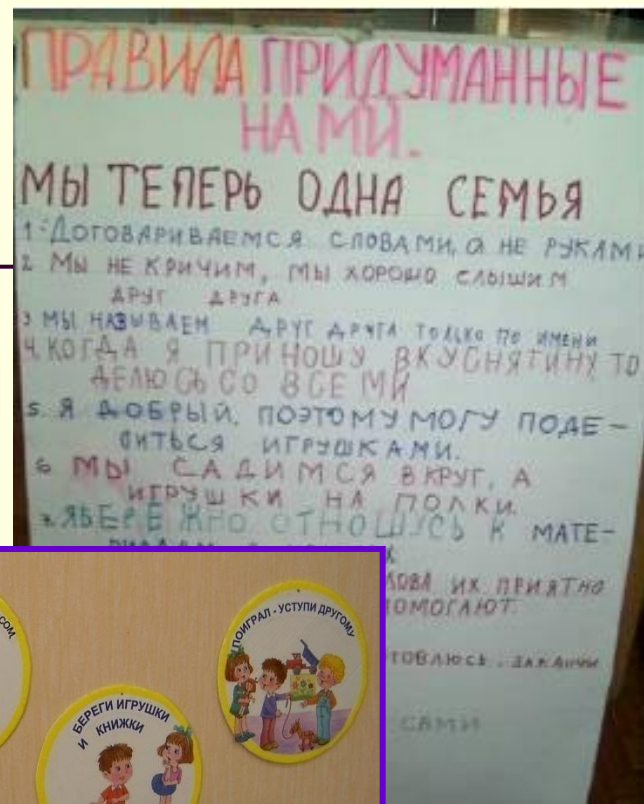 ПРАВИЛА ПРИДУМАННЫЕ
НАМИ.
МЫ ТЕПЕРЬ ОДНА СЕМЬЯ
1. ДОГОВАРИВАЕМСЯ СЛОВАМИ, А НЕ РУКАМИ
2 МЫ НЕ КРИЧИМ, МЫ ХОРОШО СЛЫШИМ
ДРУГ ДРУГА
3 МЫ НАЗЫВАЕМ ДРУГ ДРУГА ТОЛЬКО ПО ИМЕНИ
4. КОГДА Я ПРИНОШУ ВКУСНЯТИНУ ТО
ДЕЛЮСЬ СО ВСЕМИ
5. Я ДОБРЫЙ, ПОЭТОМУ МОГУ ПОДЕ-
ЛИТЬСЯ ИГРУШКАМИ.
6 МЫ САДИМСЯ В КРУГ, А
ИГРУШКИ НА ПОЛКИ.
7. Я БЕРЕЖНО ОТНОШУСЬ К МАТЕ-
ИХ ПРИЯТНО
ПОМОГАЮТ.
САМИ
ПОИГРАЛ - УСТУПИ ДРУГОМУ
БЕРЕГИ ИГРУШКИ
И КНИЖКИ